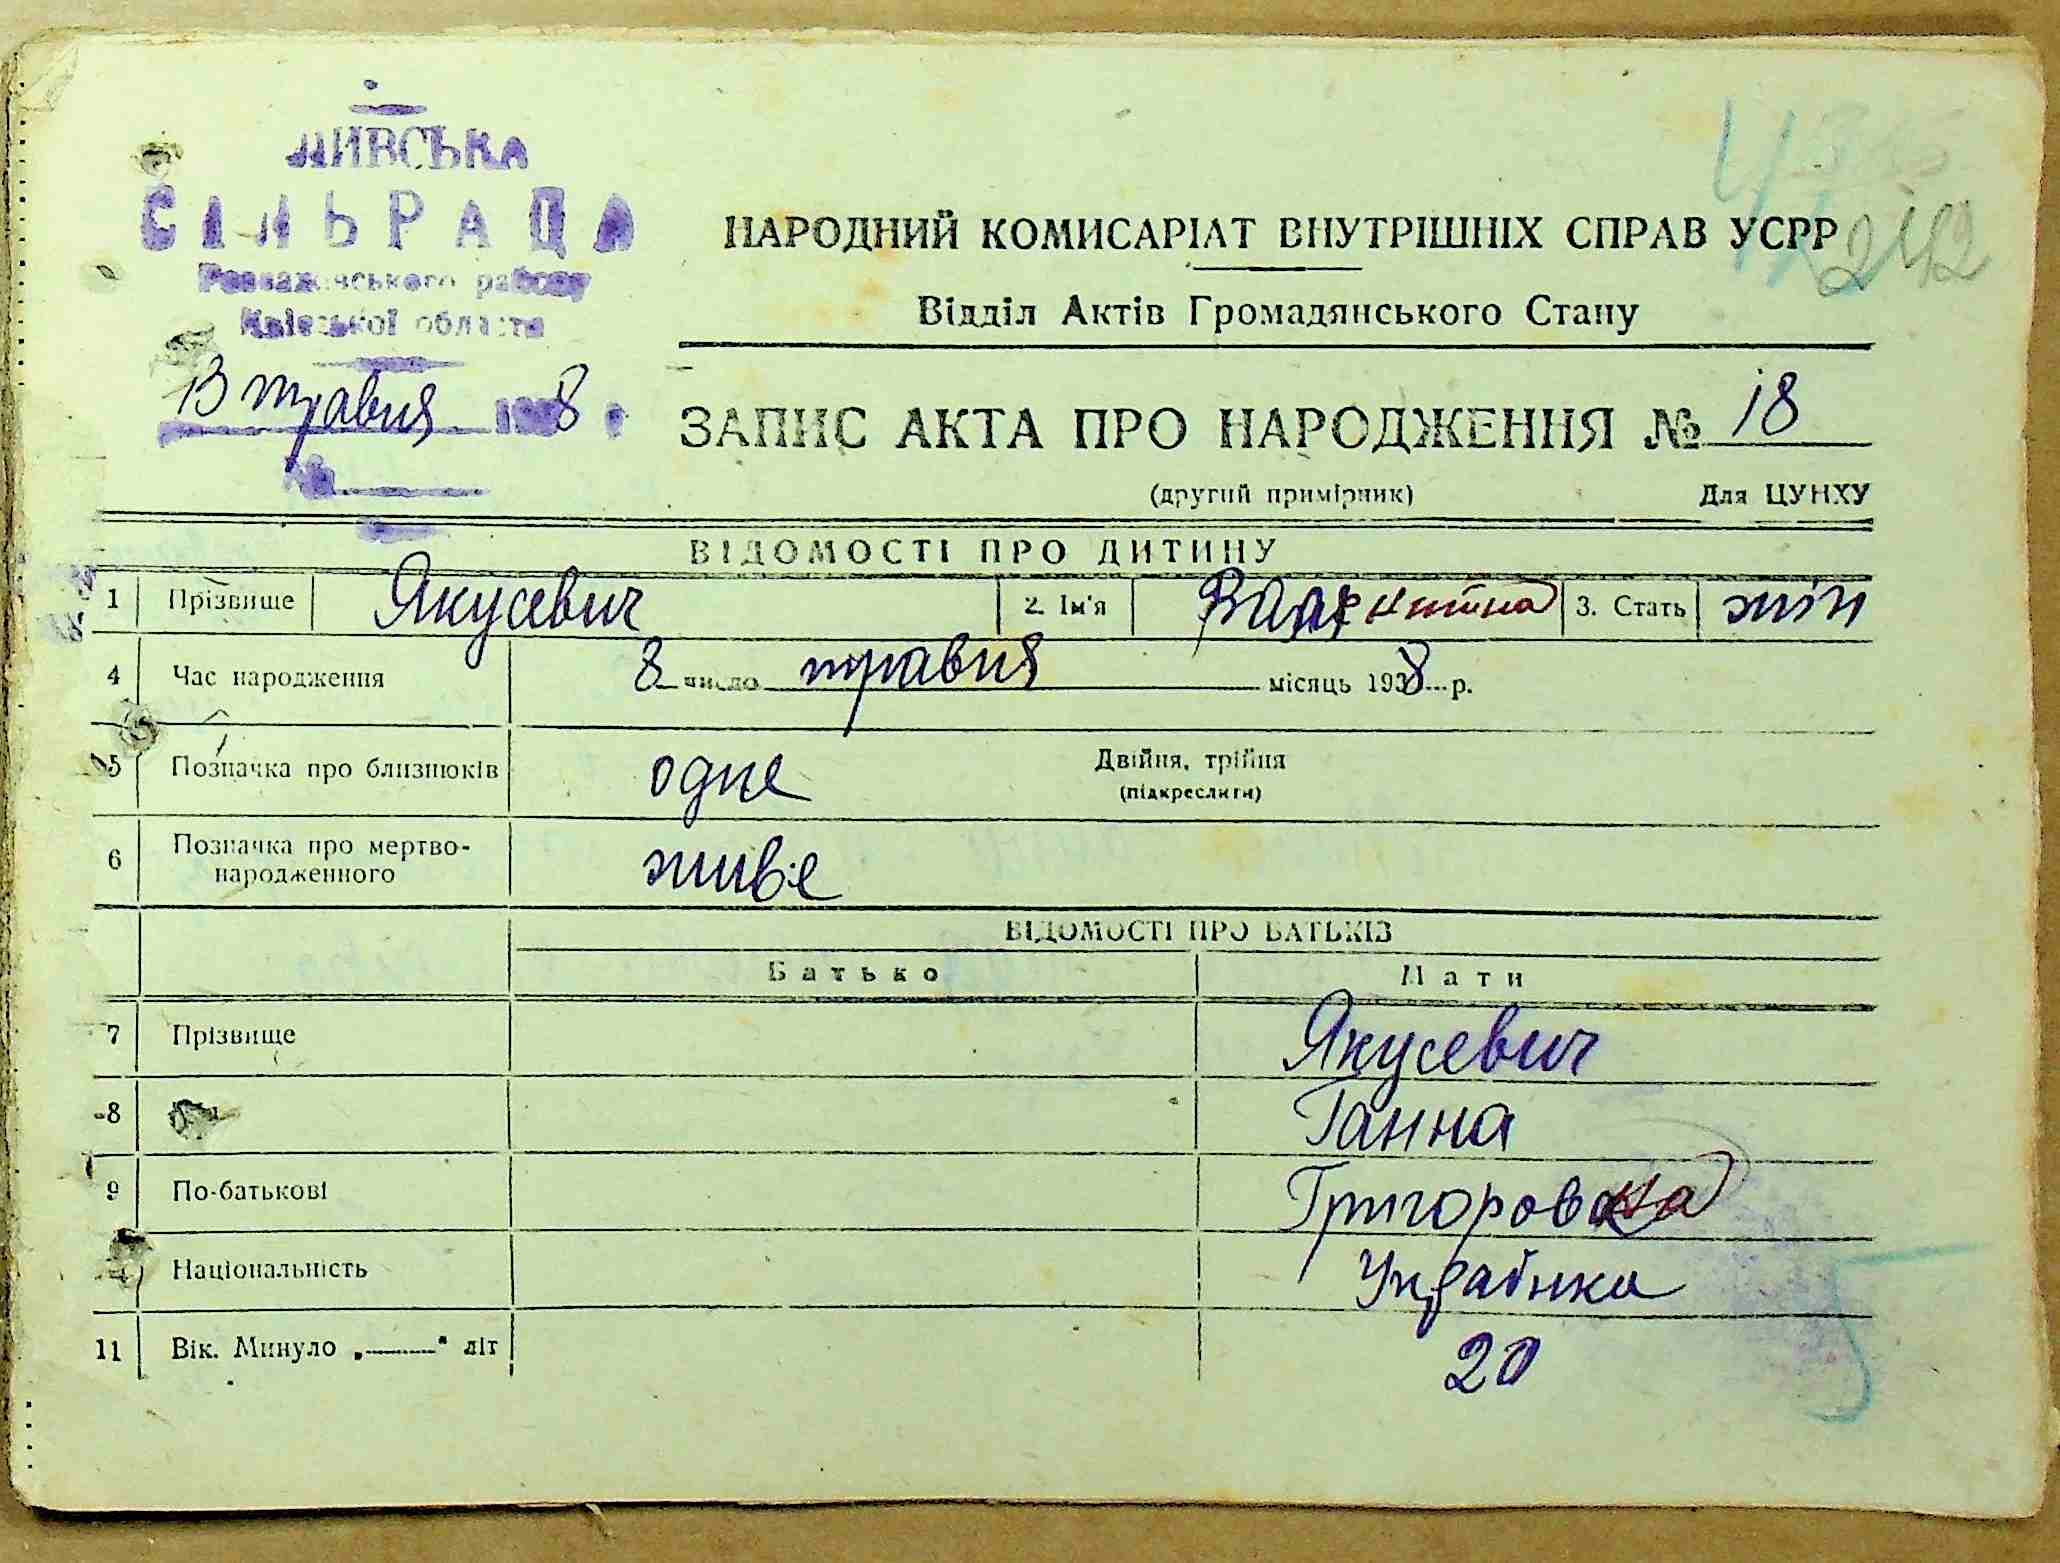 СІЛЬРАДА
Розважівського району
Київської области
13 травня 1938 р.
№
НАРОДНИЙ КОМИСАРІАТ ВНУТРІШНІХ СПРАВ УСРР
212
Відділ Актів Громадянського Стану
ЗАПИС АКТА ПРО НАРОДЖЕННЯ № 18
(другий примірник) Для ЦУНХУ
ВІДОМОСТІ ПРО ДИТИНУ
1 Прізвище Якусевич 2. Ім'я Валентина 3. Стать жін
4 Час народження 8 число травня місяць 1938 р.
5 Позначка про близнюків одне Двійня, трійня
(підкреслити)
6 Позначка про мертво-
народженного живе
ВІДОМОСТІ ПРО БАТЬКІВ
Батько Мати
7 Прізвище Якусевич
8 Ганна
9 По-батькові Григоровна
Національність Українка
11 Вік. Минуло „——“ літ 20